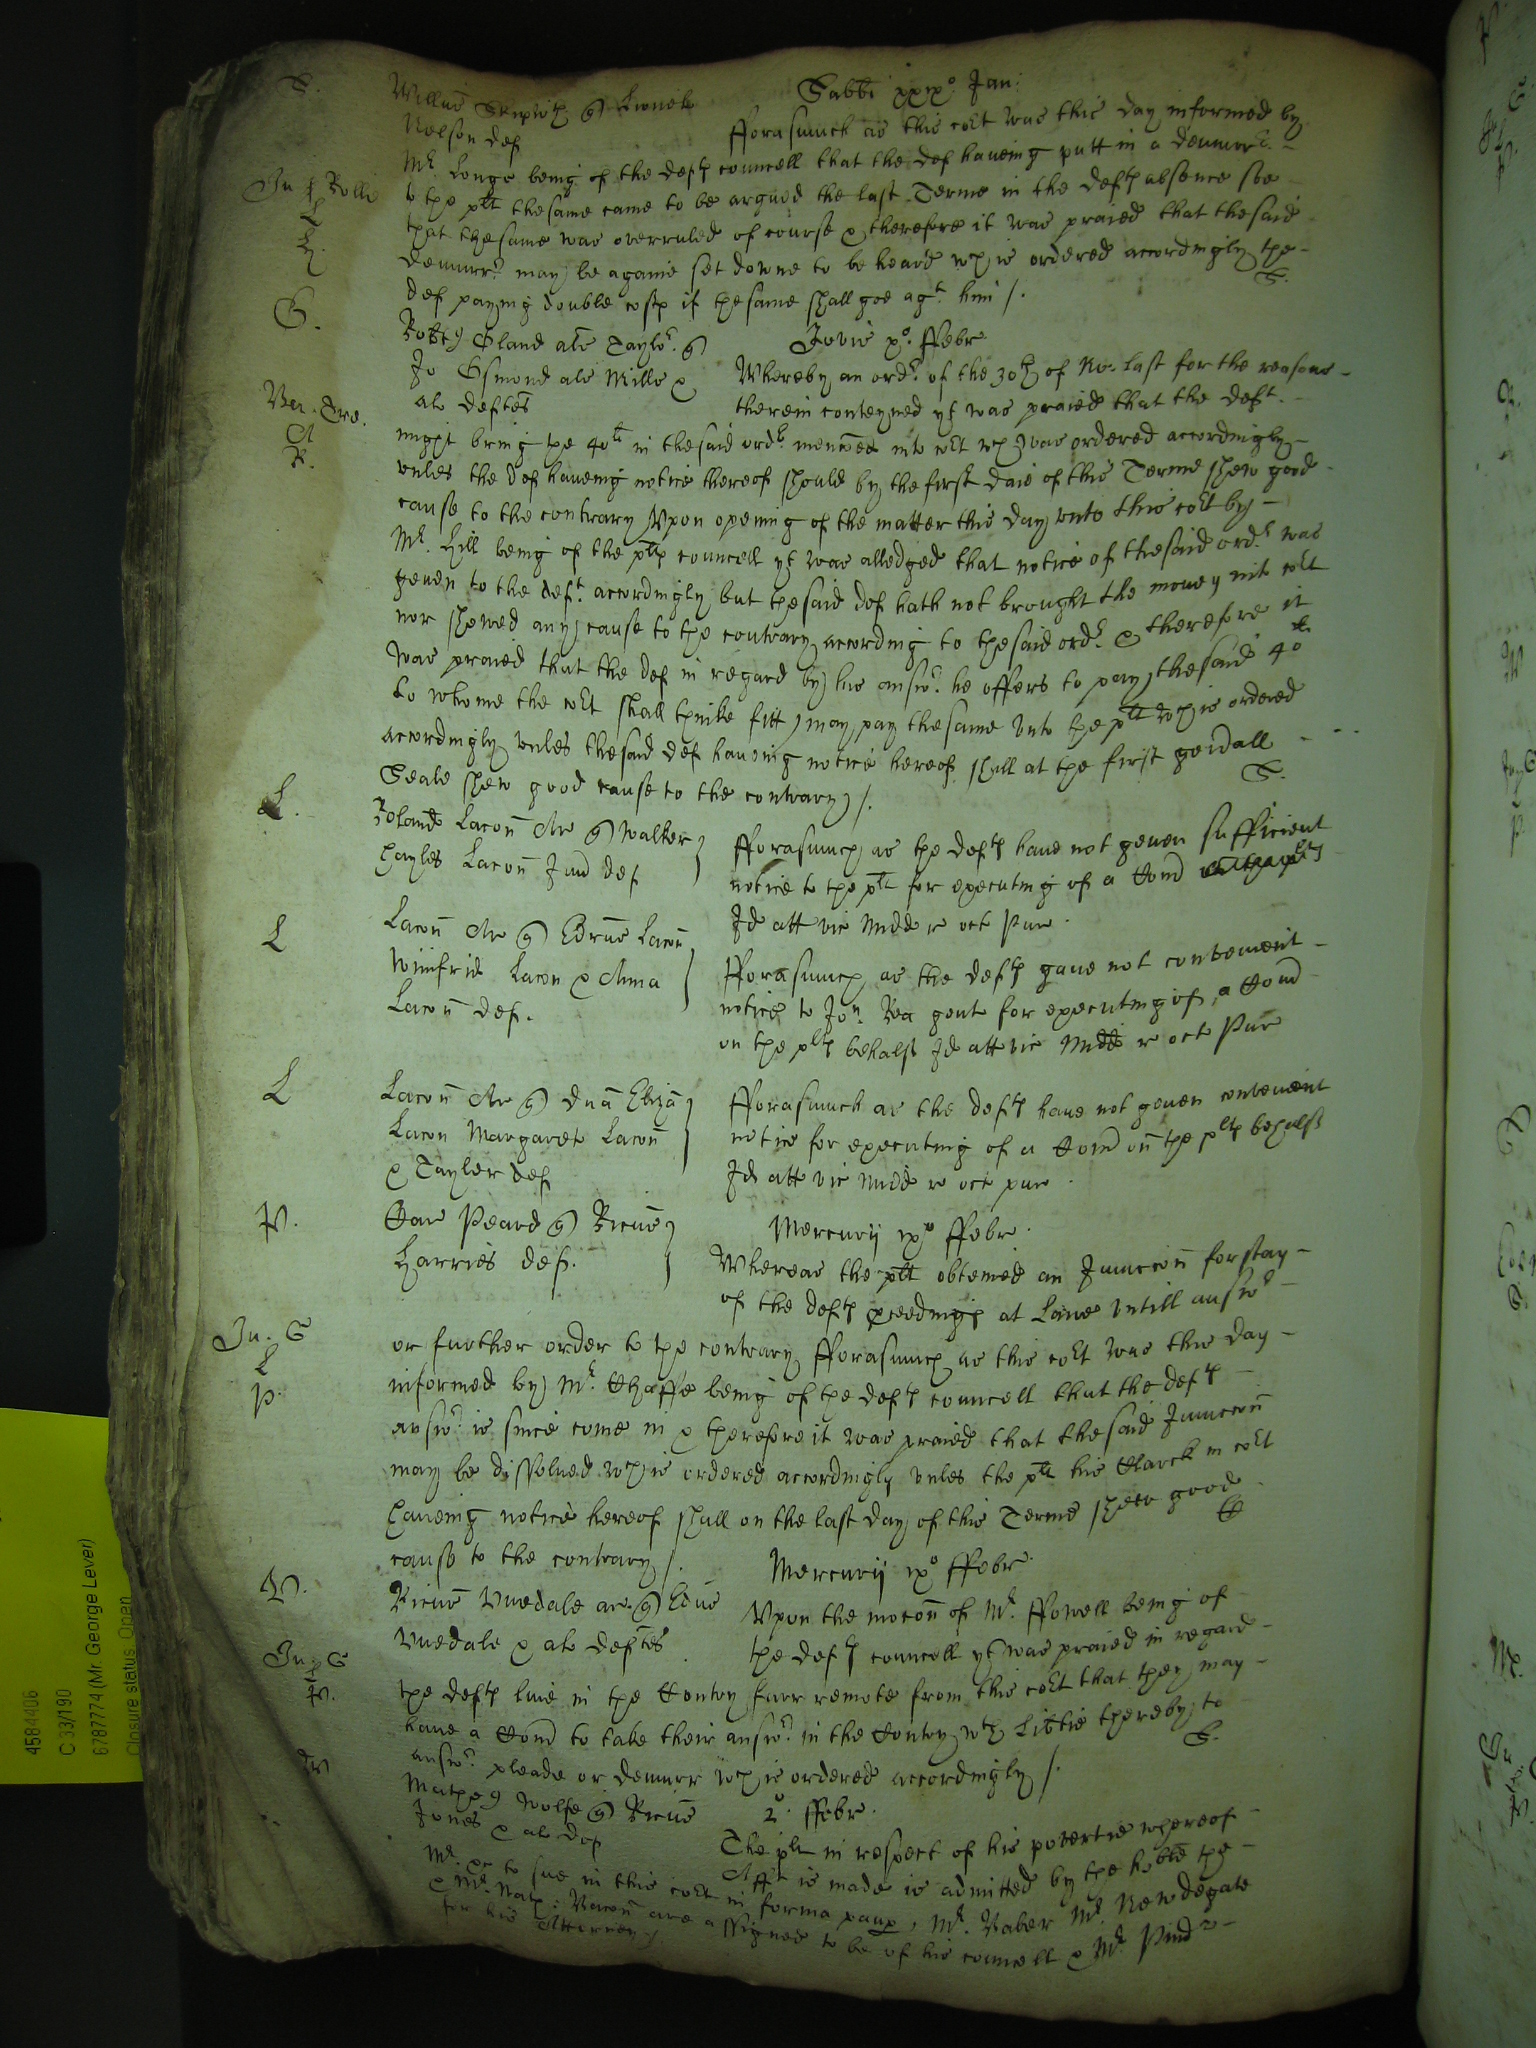 S.
Willus Skipwth q Lionels Sabbi xxixo Jan:
Nelson def fforasmuch as this cort was this day informed by
Mr. Longe being of the defts councell that the def haueing putt in a demurrr.
In Rolls
to the plt thesame came to be argued the last Terme in the defts absence soe
L
that thesame was overruled of course & therefore it was praied that thesaid
H.
demurrr. may be againe set downe to be heard wch is ordered accordingly the
S.
def paying double costs if thesame shall goe agt. him /.
G.
als Taylor. q Jovis xo. ffebr
Jo Esmond als Mills & Whereby an ordr. of the 30th of No. last for the reasons
als deftes therein conteyned yt was praied that the deft.
might bring the 40li in thesaid ordr. menconed into cort wch was ordered accordingly
A
R.
vnles the def haueing notice thereof should by the first daie of this Terme shew good
cause to the contrary Vpon opening of the matter this day vnto this cort by
Mr. Hill being of the plts councell yt was alledged that notice of thesaid ordr. was
geuen to the deft. accordingly but thesaid def hath not brought the money into cort
nor shewed any cause to the contrary according to thesaid ordr. & therefore it
was praied that the def in regard by his answr. he offers to pay thesaid 40li
to whome the cort shall thinke fitt may pay thesame vnto the plt wch is ordered
accordingly vnles thesaid def haueing notice hereof shall at the first gen'all
S.
Seale shew good cause to the contrary /.
L.
Roland Lacon Ar q Walter fforasmuch as the defts haue not geuen sufficient
Hayles Lacon Jund def notice to the plt for executing of a Com
Id att vic Midd r oct Pur
L
Lacon Ar q Edrus Lacon
Winifrid Lacon & Anna fforasmuch as the defts gaue not convenient
Lacon def. notice to Jon. Rea gent for executing of a Com
on the plts behalf Id att vic Midd r oct Pur
L
Lacon Ar q Dna Eliza fforasmuch as the defts haue not geuen convenient
Lacon Margaret Lacon notice for executing of a Com on the plts behalf
& Tayler def Id att vic Midd r oct pur
P.
Geo Peard q Ricus Mercurij ixo ffebr.
Harries def. Whereas the plt obteined an Junccon for stay
of the defts pceedings at Lawe vntill answr
In. G
L
P.
or further order to the contrary fforasmuch as this cort was this day
informed by Mr. Chaffe being of the defts councell that the defts
answr. is since come in & therefore it was praied that thesaid Junccon
may be dissolued wch is ordered accordingly vnles the plt his Clarck in cort
haueing notice hereof shall on the last day of this Terme shew good
cause to the contrary /.
V.
Mercurij ixo ffebr.
Ricus Vuedale ar q Edus Vpon the mocon of Mr. ffowell being of
Vuedale & als deftes the defts councell yt was praied in regard
In. G
P.
the defts liue in the Contry farr remote from this cort that they may
haue a Com to take their answr. in the Contry wth Lib'tie thereby to
S.
answr. pleade or demurr wch is ordered accordingly /.
W
Mathe Wolfe q Ricus 2o. ffebr.
Jones & als def The plt in respect of his povertie whereof
Afft is made is admitted by the hoble the
Mr. &c to sue in this cort in forma paup, Mr. Baber Mr. Newdegate
& Mr. Nath: Bacon are assigned to be of his councell & Mr. Pind
for his Atturney /.
4584406
C 33/190
6787774 (Mr. George Lever)
Closure status Open